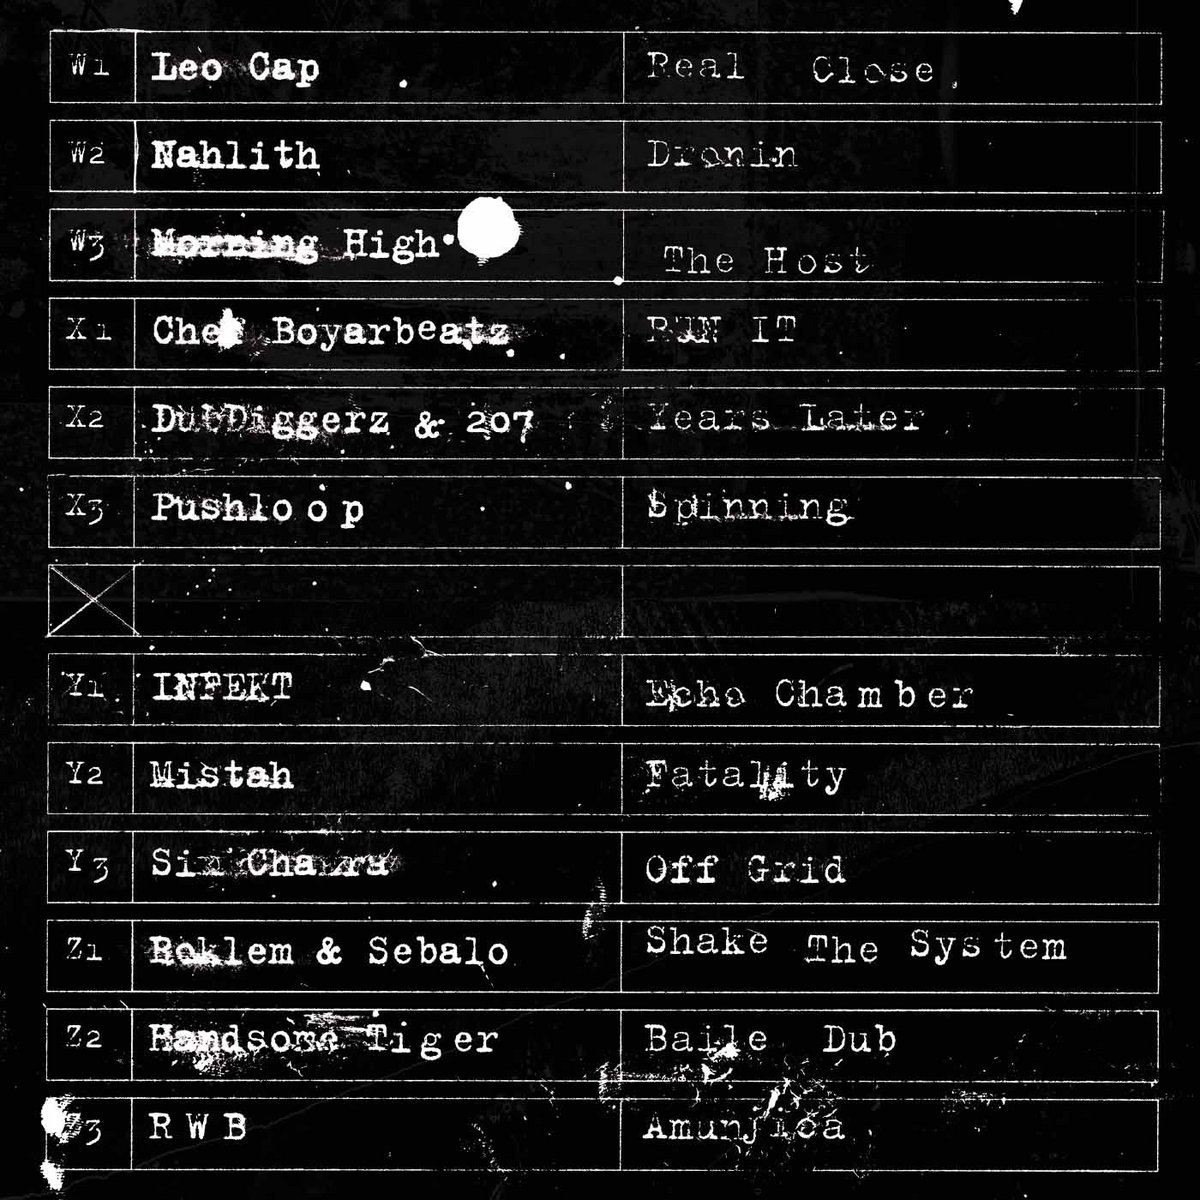 W1 Leo Cap Real Close
W2 Nahlith Dronin
W3 Morning High The Host
X1 Chef Boyarbeatz RUN IT
X2 DubDiggerz & 207 Years Later
X3 Pushloop Spinning
Y1 INFEKT Echo Chamber
Y2 Mistah Fatality
Y3 Six Chakra Off Grid
Z1 Roklem & Sebalo Shake The System
Z2 Handsome Tiger Baile Dub
Z3 RWB